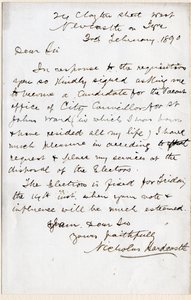 24 Clayton Street West
Newcastle on Tyne
3rd February, 1890
Dear Sir
In response to the requisition
you so kindly signed asking me
to become a Candidate for the vacant
office of City Councillor for St
Johns Ward (in which I was born
& have resided all my life) I have
much pleasure in acceding to that
request & place my services at the
disposal of the Electors.
The Election is fixed for Friday
the 14th Inst, when your vote &
influence will be much esteemed.
I am, Dear Sir
Yours faithfully
Nicholas Hardcastle